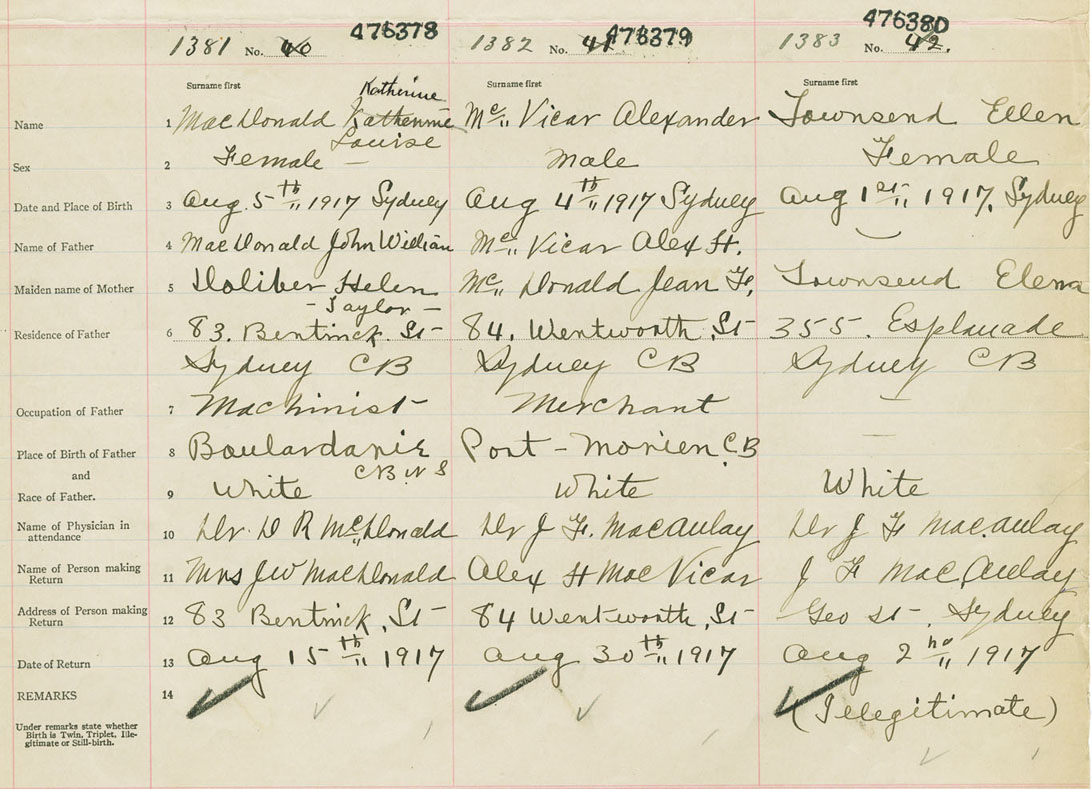 476378 476379 476380
1381 No. 40 1382 No. 41 1383 No. 42.
Surname first Surname first Surname first
Katherine
Name 1 MacDonald Katherine Mc Vicar Alexander Townsend Ellen
Louise
Sex 2 Female Male Female
Date and Place of Birth 3 Aug. 5th 1917 Sydney Aug 4th 1917 Sydney Aug 1st 1917, Sydney
Name of Father 4 MacDonald John William Mc Vicar Alex H. —
Maiden name of Mother 5 Doliber Helen Mc Donald Jean F, Townsend Elena
- Taylor -
Residence of Father 6 83. Bentinck. St 84, Wentworth, St 355. Esplanade
Sydney CB Sydney CB Sydney CB
Occupation of Father 7 Machinist Merchant —
Place of Birth of Father 8 Boulardarie Port - Morien CB —
and CB NS
Race of Father. 9 White White White
Name of Physician in
attendance 10 Dr. D R McDonald Dr J F. MacAulay Dr J F MacAulay
Name of Person making
Return 11 Mrs JW MacDonald Alex H MacVicar J F MacAulay
Address of Person making
Return 12 83 Bentinck, St 84 Wentworth, St Geo St. Sydney
Date of Return 13 Aug 15th 1917 Aug 30th 1917 Aug 2nd 1917
REMARKS 14 (Illegitimate)
Under remarks state whether
Birth is Twin, Triplet, Ille-
gitimate or Still-birth.